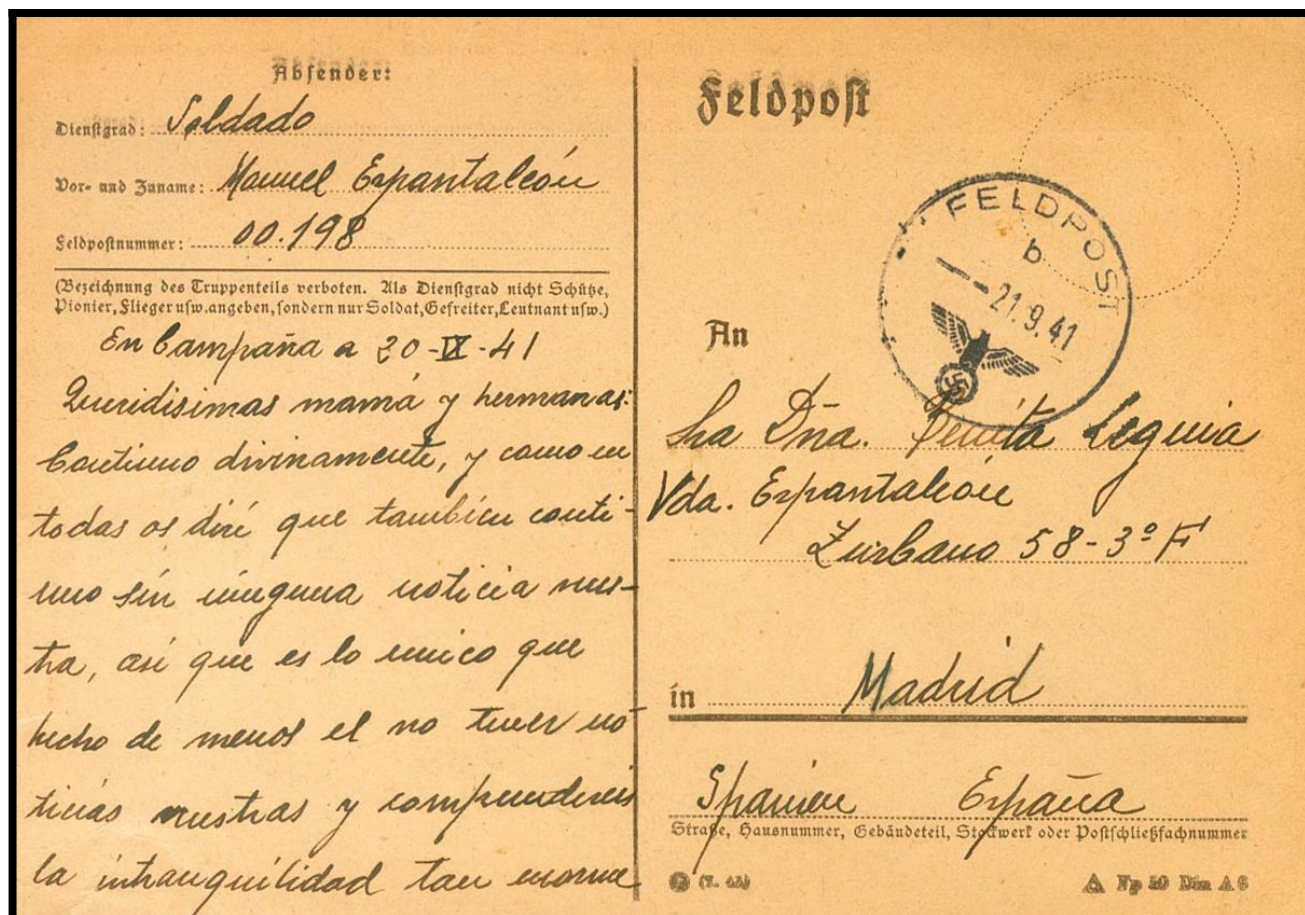 Absender:
Dienstgrad: Soldado
Vor- und Zuname: Manuel Espantaleón
Feldpostnummer: 00.198
(Bezeichnung des Truppenteils verboten. Als Dienstgrad nicht Schütze,
Pionier, Flieger usw. angeben, sondern nur Soldat, Gefreiter, Leutnant usw.)
En Campaña a 20-IX-41
Queridisimas mamá y hermanas:
Continuo divinamente, y como en
todas os diré que también conti-
nuo sin ninguna noticia vues-
tra, asi que es lo unico que
hecho de menos el no tener no
ticias vuestras y comprendereis
la intranquilidad tan enorme
Feldpost
FELDPOST
b
21.9.41
An
Sra Dña. Benita Leguia
Vda. Espantaleón
Zurbano 58-3º F
in Madrid
Spanien España
Straße, Hausnummer, Gebäudeteil, Stockwerk oder Postschließfachnummer
Din A 6